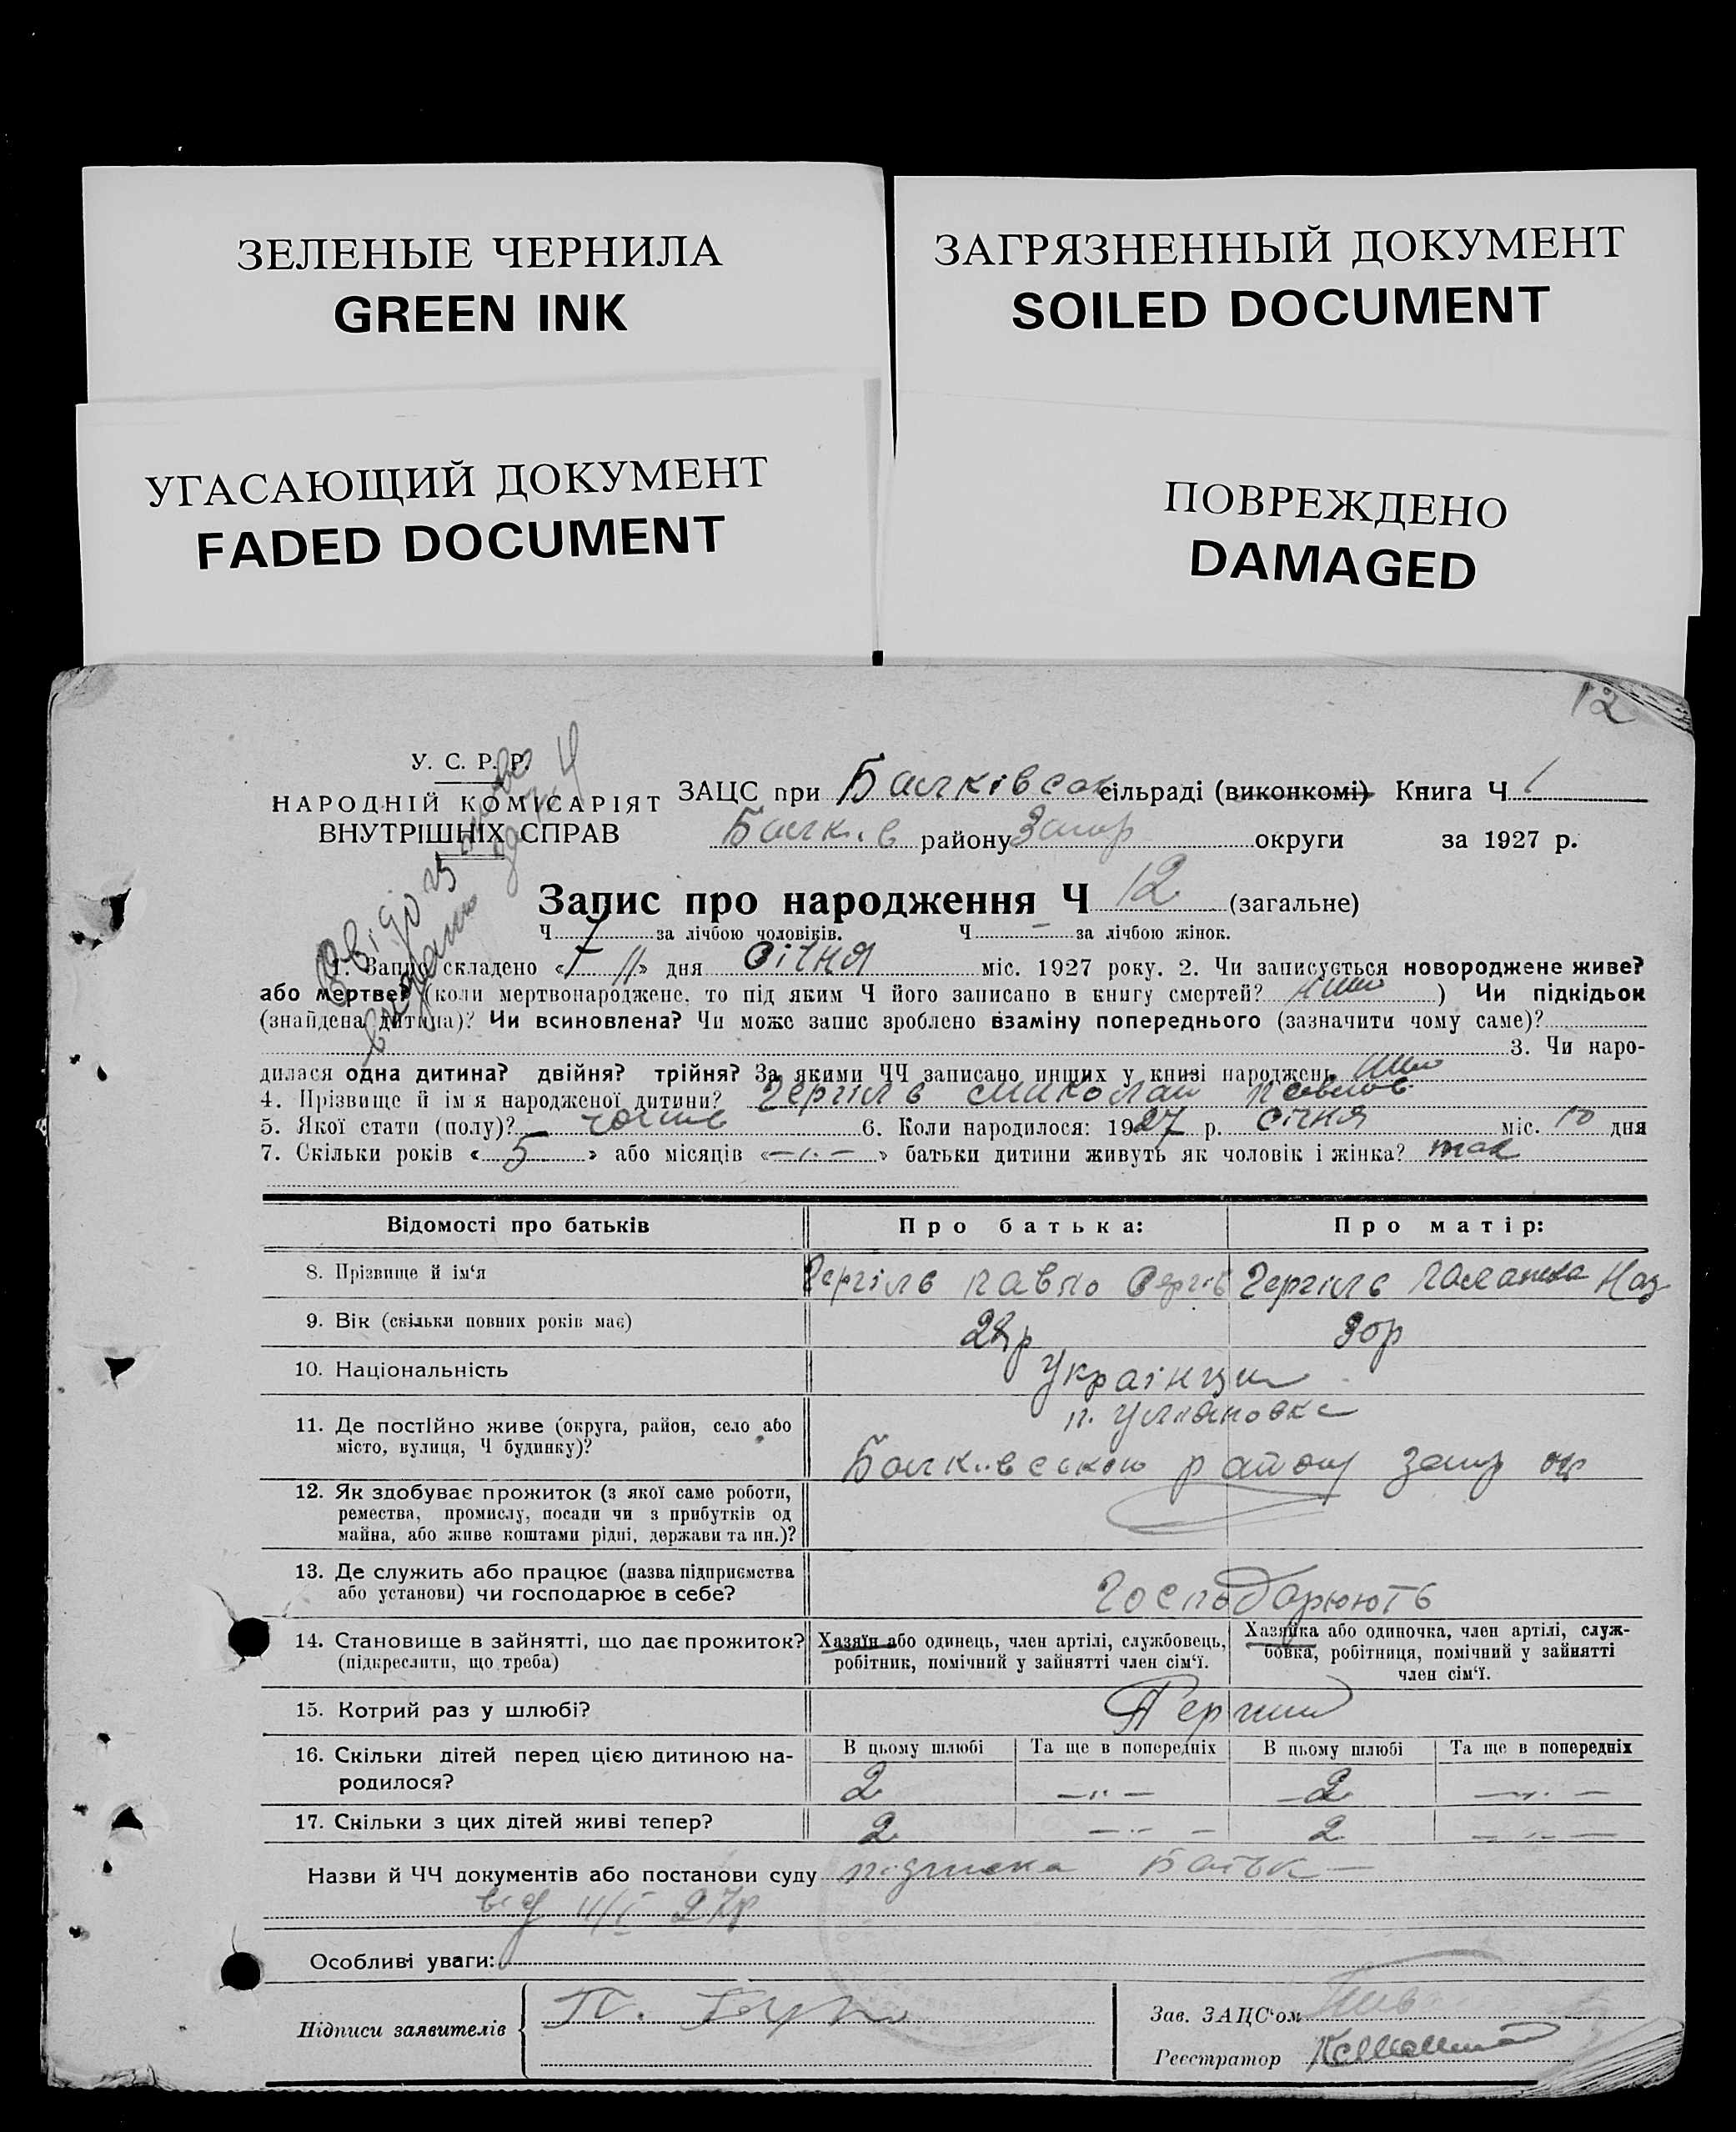 ЗЕЛЕНЫЕ ЧЕРНИЛА
GREEN INK
ЗАГРЯЗНЕННЫЙ ДОКУМЕНТ
SOILED DOCUMENT
УГАСАЮЩИЙ ДОКУМЕНТ
FADED DOCUMENT
ПОВРЕЖДЕНО
DAMAGED
12
У. С. Р. Р.
НАРОДНІЙ КОМІСАРІЯТ
ВНУТРІШНІХ СПРАВ
ЗАЦС при сільраді (виконкомі) Книга Ч 1
району Запор округи за 1927 р.
Запис про народження Ч 12 (загальне)
Ч 7 за лічбою чоловіків. Ч – за лічбою жінок.
1. Запис складено « 11» дня січня міс. 1927 року. 2. Чи записується новороджене живе?
або мертве? (коли мертвонароджене, то під яким Ч його записано в книгу смертей? ) Чи підкідьок
(знайдена дитина)? Чи всиновлена? Чи може запис зроблено взаміну попереднього (зазначити чому саме)?
3. Чи наро-
дилася одна дитина? двійня? трійня? За якими ЧЧ записано инших у книзі народжень
4. Прізвище й ім'я народженої дитини? Миколай Павлов
5. Якої стати (полу)? 6. Коли народилося: 1927 р. січня міс. 10 дня
7. Скільки років « 5 » або місяців «–"–» батьки дитини живуть як чоловік і жінка? так
Відомості про батьків
Про батька:
Про матір:
8. Прізвище й ім'я
Павло
9. Вік (скільки повних років має)
30р
10. Національність
Українці
11. Де постійно живе (округа, район, село або
місто, вулиця, Ч будинку)?
району Запор окр
12. Як здобуває прожиток (з якої саме роботи,
ремества, промислу, посади чи з прибутків од
майна, або живе коштами рідні, держави та ин.)?
13. Де служить або працює (назва підприємства
або установи) чи господарює в себе?
Господарюють
14. Становище в зайнятті, що дає прожиток?
(підкреслити, що треба)
Хазяїн або одинець, член артілі, службовець,
робітник, помічний у зайнятті член сім'ї.
Хазяйка або одиночка, член артілі, служ-
бовка, робітниця, помічний у зайнятті
член сім'ї.
15. Котрий раз у шлюбі?
Перший
16. Скільки дітей перед цією дитиною на-
родилося?
В цьому шлюбі
Та ще в попередніх
В цьому шлюбі
Та ще в попередніх
2 –"– 2 –"–
17. Скільки з цих дітей живі тепер?
2 –"– 2 –"–
Назви й ЧЧ документів або постанови суду підписка
від 11/I 27р
Особливі уваги:
Підписи заявителів
Зав. ЗАЦС'ом
Реєстратор